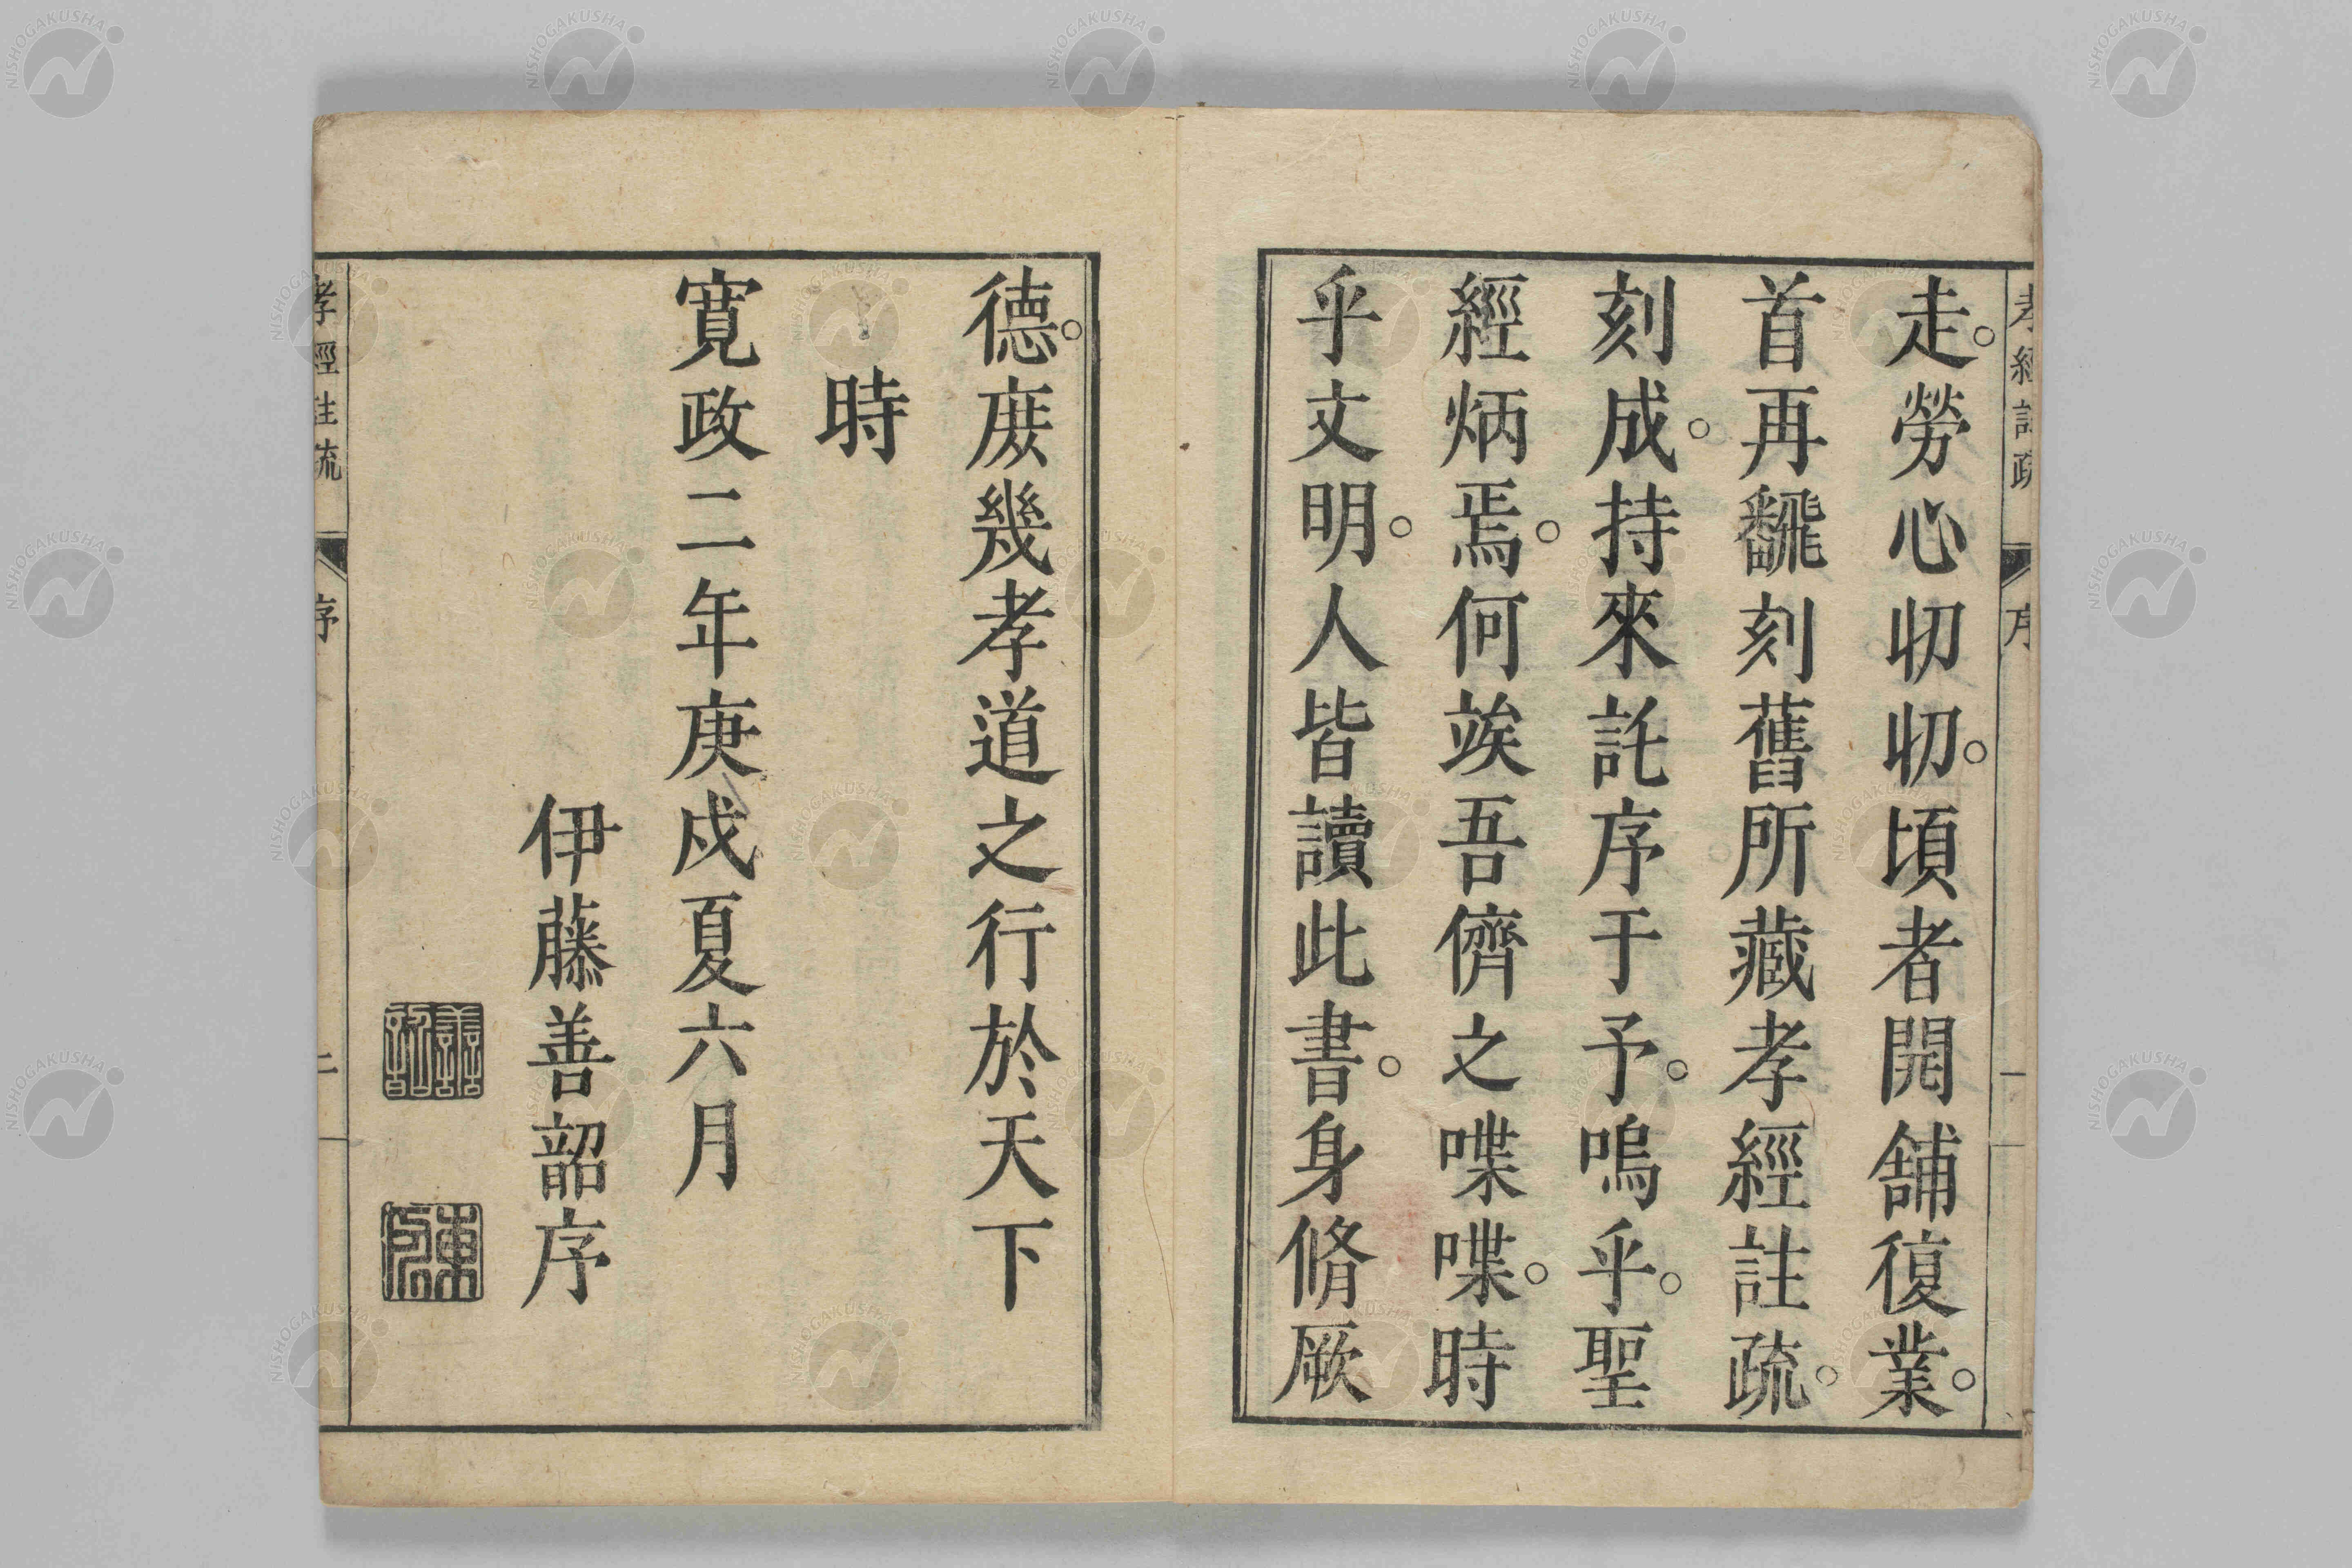 走。勞心忉忉。頃者開舖復業。
首再飜刻舊所藏孝經註疏。
刻成。持來託序于予。嗚乎。聖
經炳焉。何竢吾儕之喋喋。時
乎文明。人皆讀此書。身脩厥
德。庶幾孝道之行於天下
時
寬政二年庚戌夏六月
伊藤善韶序
善韶
孝經註疏
序
二
NISHOGAKUSHA